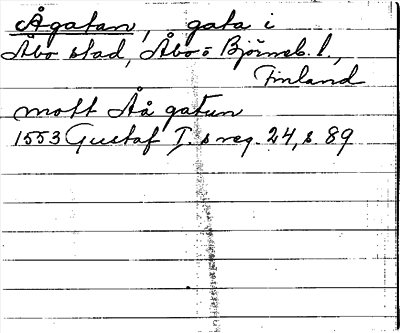 Ågatan, gata i
Åbo stad, Åbo o Björneb. l.,
Finland
mott Åå gatun
1553 Gustaf I.s reg. 24, s. 89